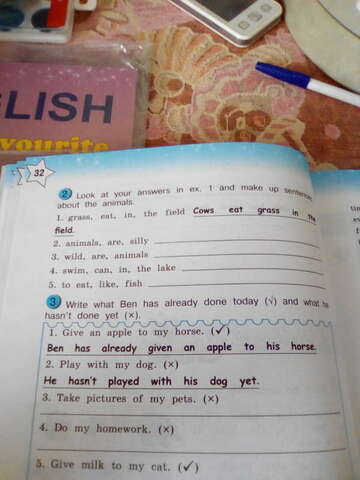 GLISH
avourite
32
2 Look at your answers in ex. 1 and make up senten
about the animals.
1. grass, eat, in, the field Cows eat grass in the
field.
2. animals, are, silly
3. wild, are, animals
4. swim, can, in, the lake
5. to eat, like, fish
3 Write what Ben has already done today (√) and what he
hasn't done yet (×).
1. Give an apple to my horse. (✓)
Ben has already given an apple to his horse.
2. Play with my dog. (×)
He hasn't played with his dog yet.
3. Take pictures of my pets. (×)
4. Do my homework. (×)
5. Give milk to my cat. (✓)